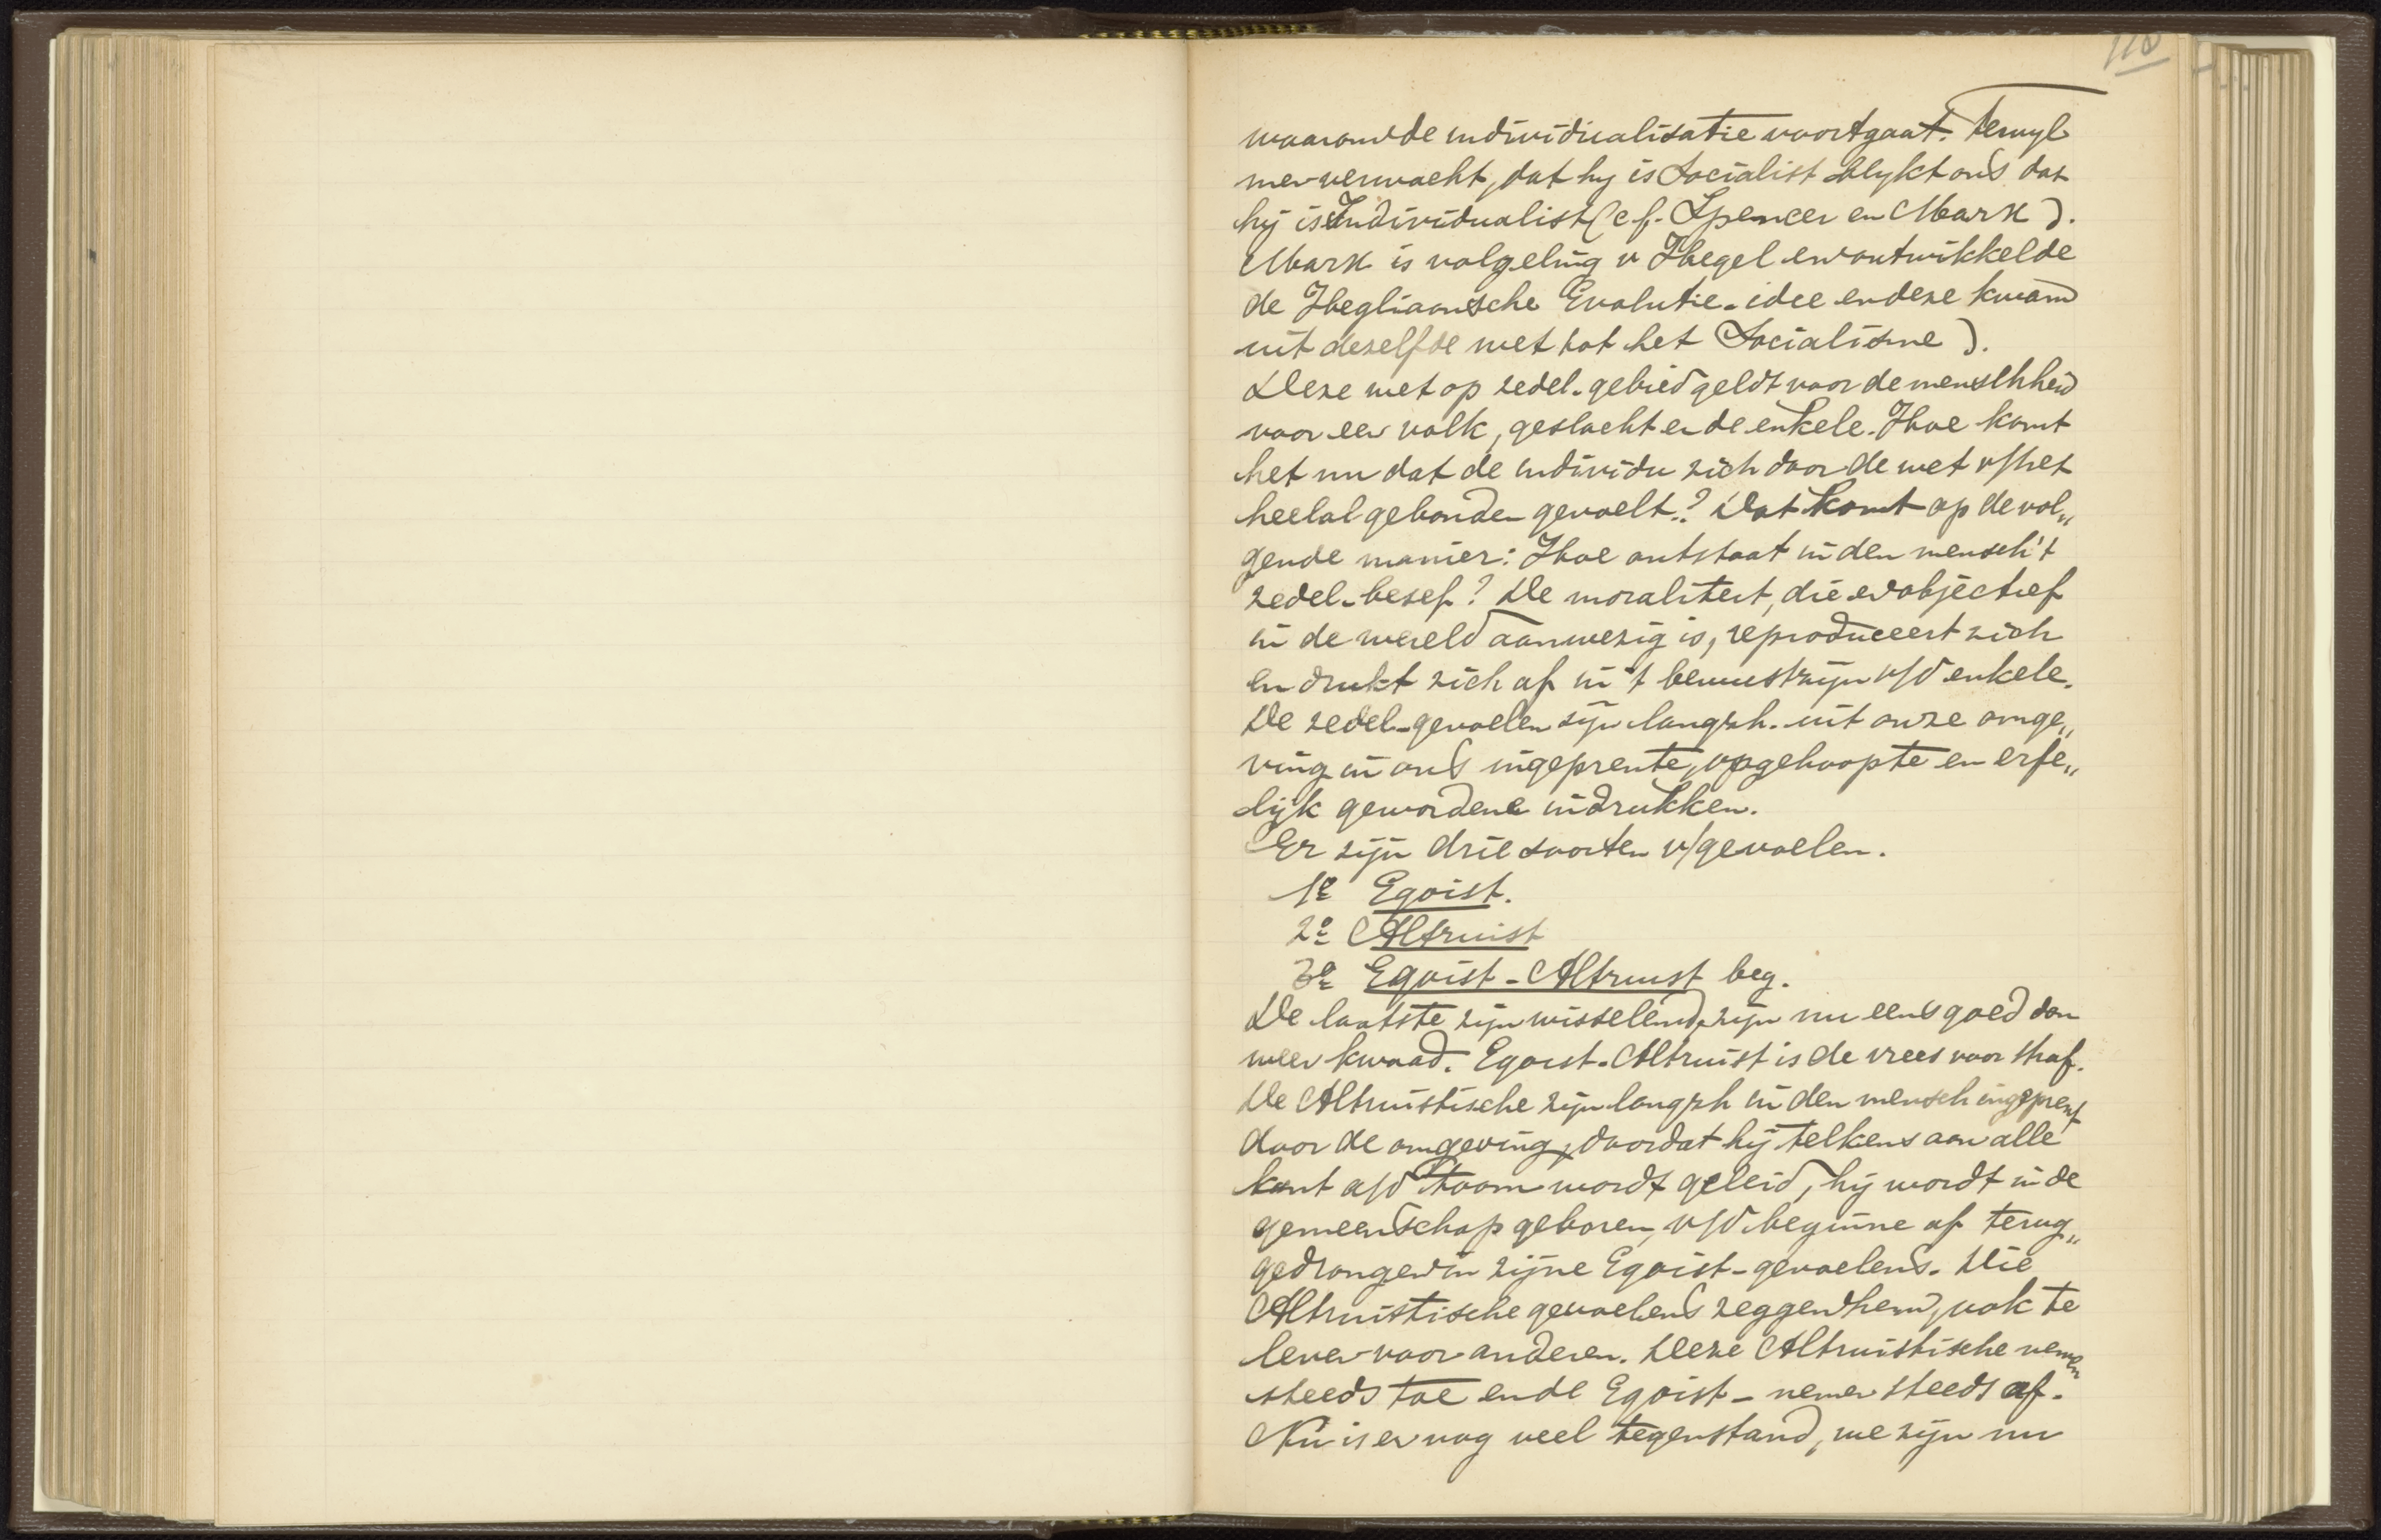 118
waarom de individualisatie voortgaat. Terwyl
men verwacht, dat hy is Socialist blykt ons dat
hij is Individualist (cf. Spencer en Marx).
Marx is volgeling v Hegel en ontwikkelde
de Hegliaansche Evolutie-idee en deze kwam
uit dezelfde wet tot het Socialisme).
Deze wet op zedel. gebied geldt voor de menschheid
voor een volk, geslacht en de enkele. Hoe komt
het nu dat de individu zich door de wet v/het
heelal gebonden gevoelt? Dat komt op de vol„
gende manier: Hoe ontstaat in den mensch 't
zedel. besef? De moraliteit, die er objectief
in de wereld aanwezig is, reproduceert zich
en drukt zich af in 't bewustzijn v/d enkele.
De zedel. gevoelen zijn langzh. uit onze omge„
ving in ons ingeprente, opgehoopte en erfe„
lijk gewordene indrukken.
Er zijn drie soorten v/gevoelen.
1e Egoist.
2e Altruist
3e Egoist-Altruist beg.
De laatste zijn wisselend, zijn nu eens goed dan
weer kwaad. Egoist-Altruist is de vrees voor straf.
De Altruistische zijn langzh in den mensch ingeprent
door de omgeving, doordat hij telkens aan alle
kant a/d toom wordt geleid, hij wordt in de
gemeenschap geboren, v/d beginne af terug„
gedrongen in zijne Egoist-gevoelens. Die
Altruistische gevoelens zeggen hem, ook te
leven voor anderen. Deze Altruistische nemen
steeds toe en de Egoist- nemen steeds af.
Nu is er nog veel tegenstand, we zijn nu